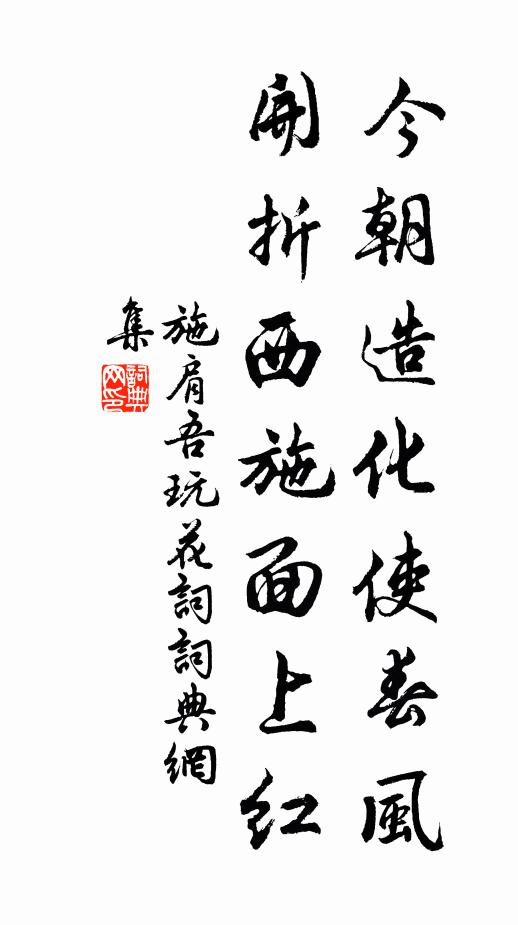 今朝造化使春風
開折西施面上紅
施肩吾玩花詞詞典網
集
詞典网印